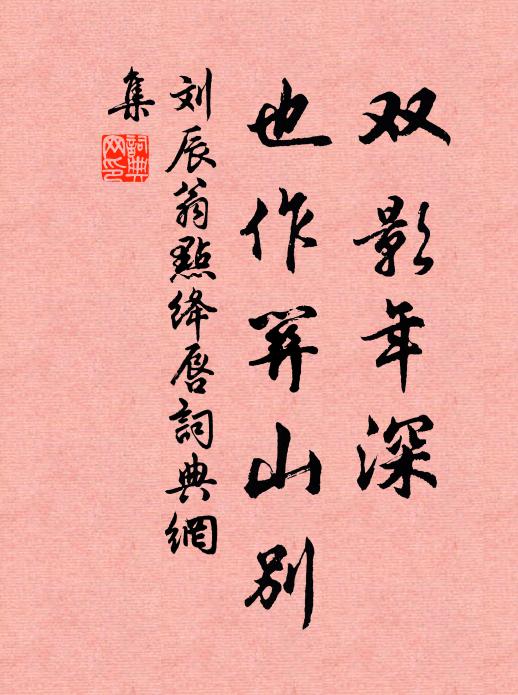 双影年深
也作关山别
刘辰翁點绛唇詞典網
集
詞典
网印